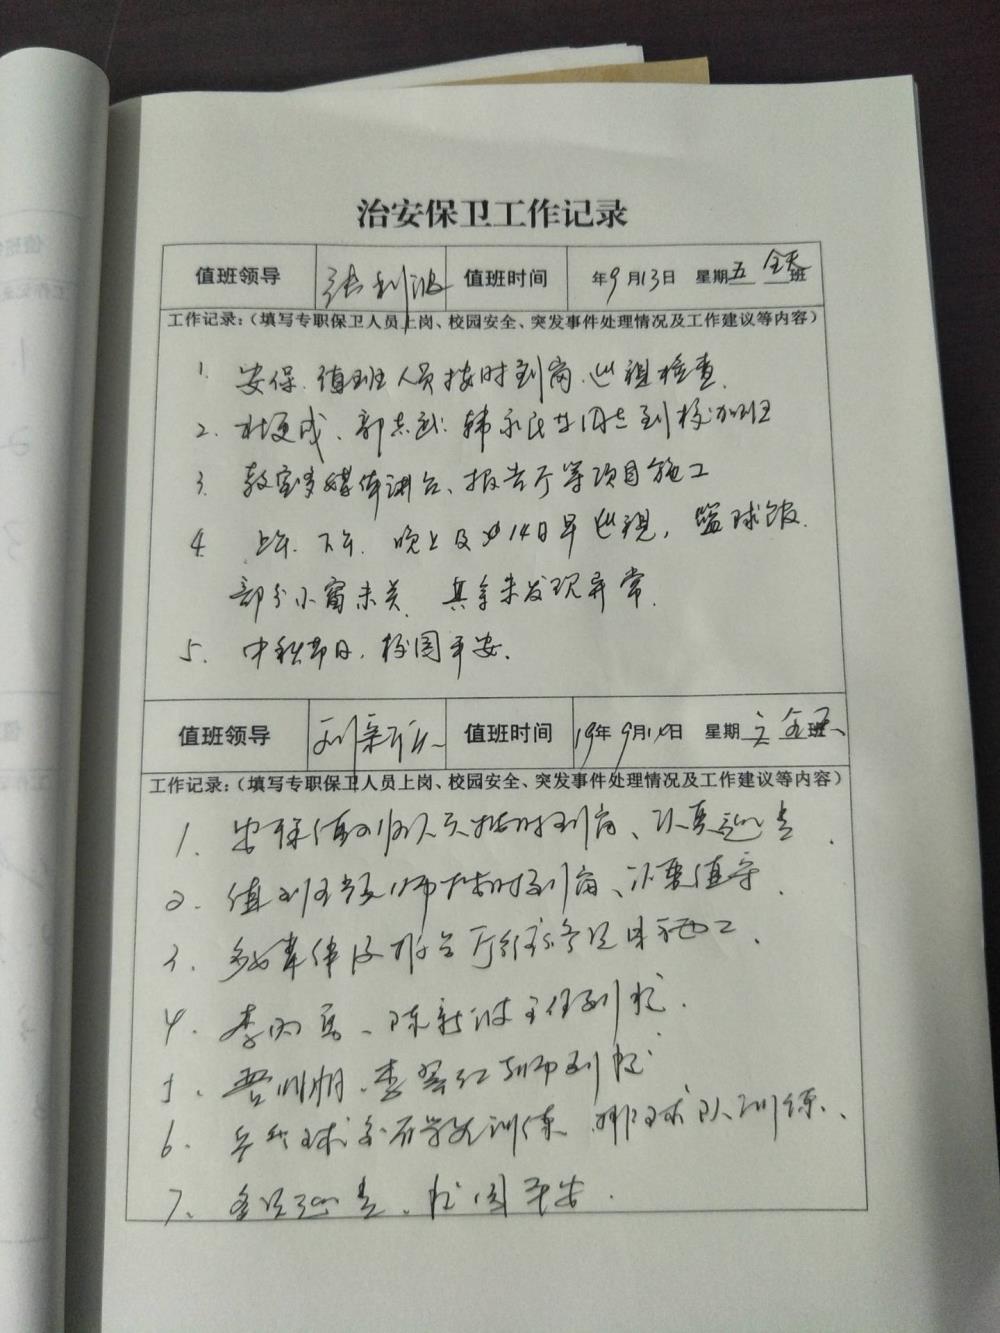 治安保卫工作记录
值班领导 张利波 值班时间 年9月13日 星期五 全天班
工作记录：（填写专职保卫人员上岗、校园安全、突发事件处理情况及工作建议等内容）
1. 安保、值班人员按时到岗、巡视检查.
2. 杜更成、郭志武、韩永民等同志到校加班
3. 教室多媒体讲台、报告厅等项目施工
4. 上午、下午、晚上及14日早巡视，篮球馆
部分小窗未关、其余未发现异常.
5. 中秋节日，校园平安.
值班领导 刘 值班时间 19年9月14日 星期六 全天班
工作记录：（填写专职保卫人员上岗、校园安全、突发事件处理情况及工作建议等内容）
1. 安保值班人员按时到岗、认真巡查.
2. 值班教师按时到岗、认真值守.
3. 多媒体及报告厅等项目施工.
4. 李 、陈新波主任到校.
5. 明、李翠红老师到校
6. 乒乓球学生训练、排球队训练、
7. 巡查、校园平安.